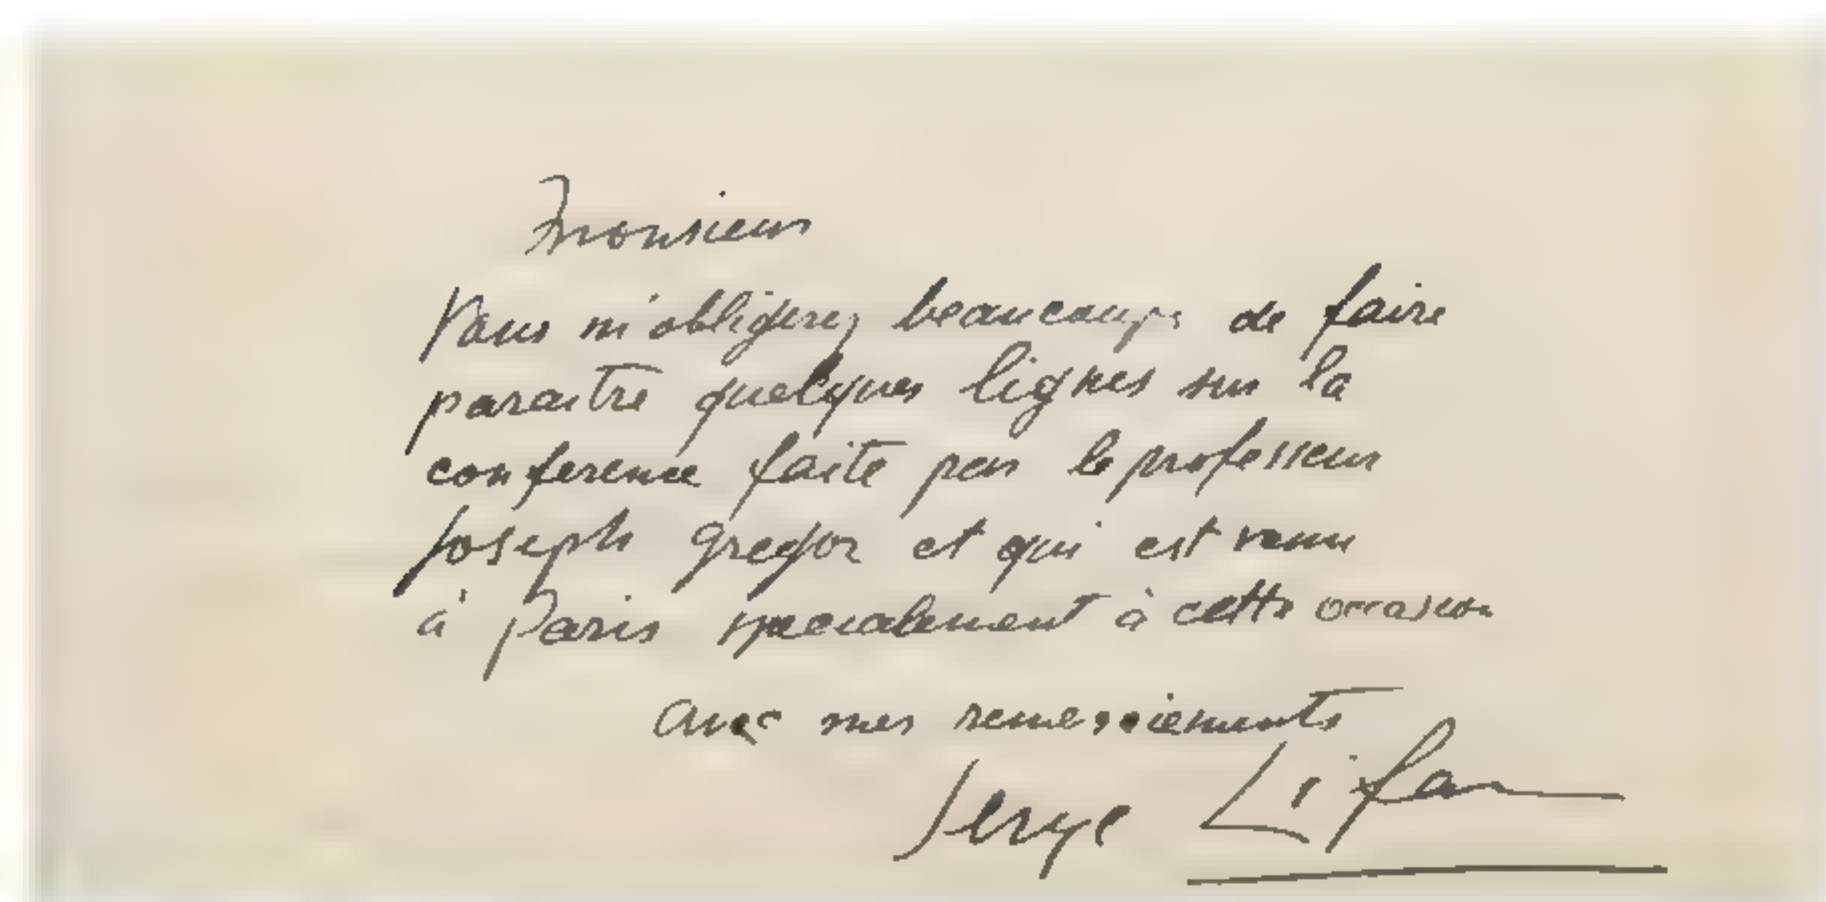 Monsieur
Vous m'obligerez beaucoup de faire
paraitre quelques lignes sur la
conference faite par le professeur
Joseph Gregor et qui est venu
à Paris specialement à cette occasion
avec mes remerciements
Serge Lifar